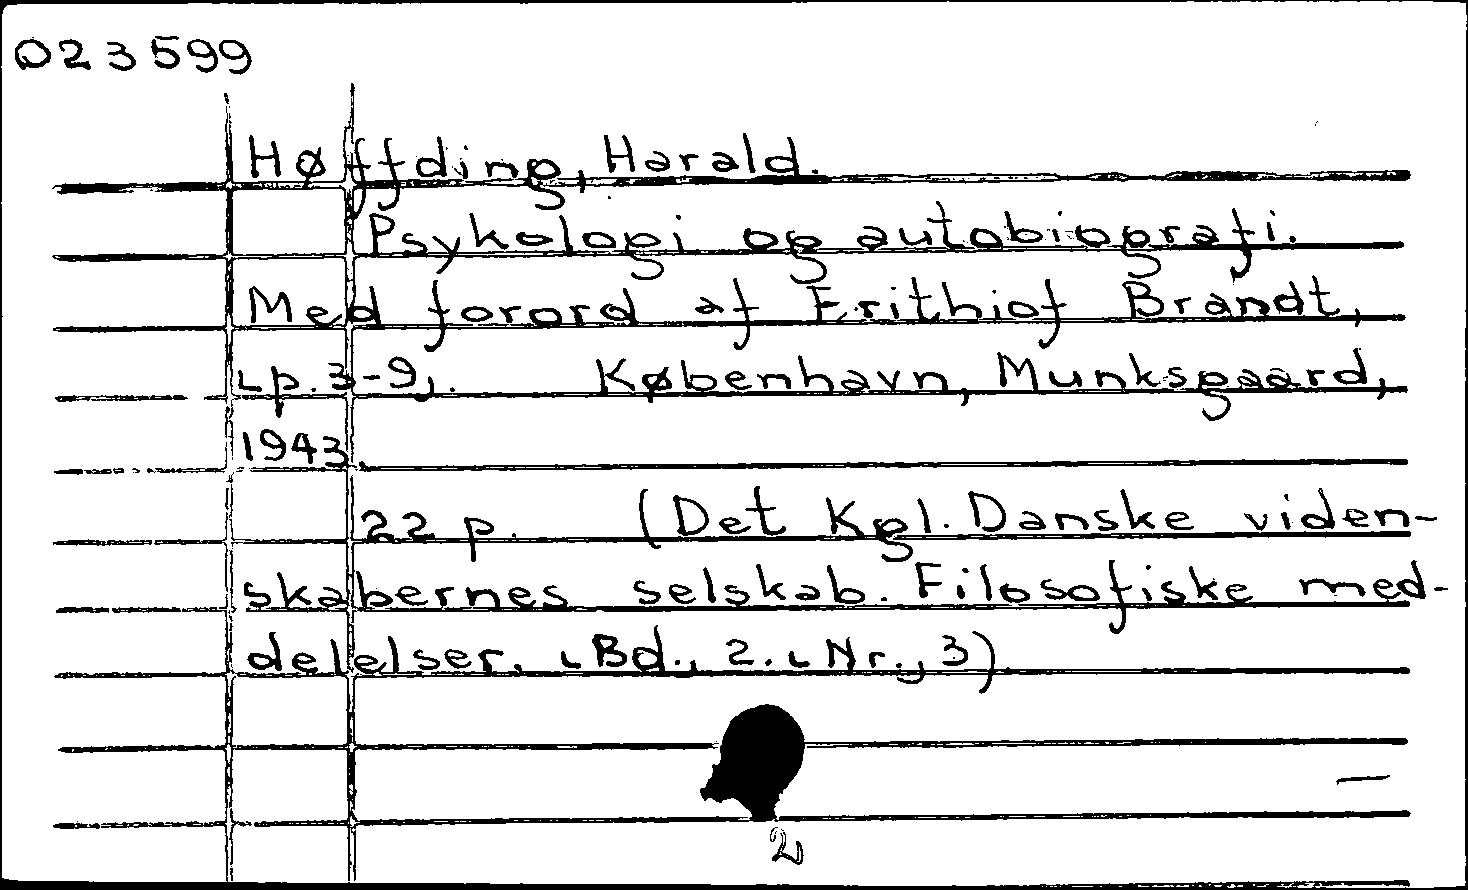 023599
Høffding, Harald.
Psykologi og autobiografi.
Med forord af Frithiof Brandt,
[p. 3-9]. København, Munksgaard,
1943.
22 p. (Det Kgl. Danske viden-
skabernes selskab. Filosofiske med-
delelser. [Bd.] 2. [Nr.] 3)
2